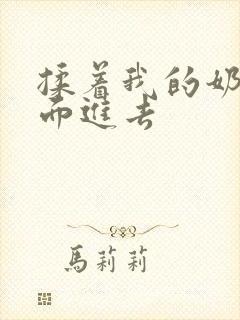 揉着我的奶
而進去
馬莉莉